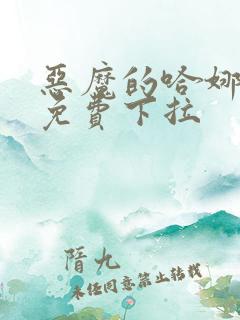 惡魔的哈娜
免費下拉
隋九
未经同意禁止转载